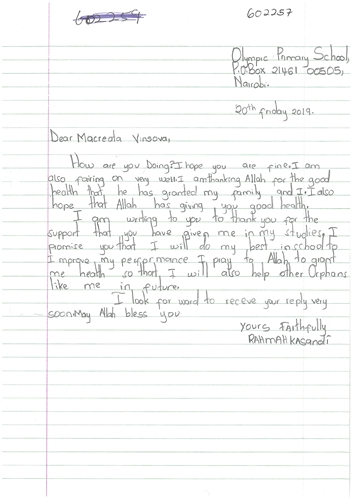 602257
602257
Olympic Primary School,
P.O Box 21461 00505,
Nairobi.
20th friday 2019.
Dear Macreala Vinsova,
How are you Doing? I hope you are fine. I am
also fairing on very well. I amthanking Allah for the good
health that, he has granted my family and I. I also
hope that Allah has giving you good health.
I am writing to you to thank you for the
support that you have given me in my studies. I
promise you that I will do my best in school to
Improve my performance I pray to Allah to grant
me health so that, I will also help other Orphans
like me in future.
I look for word to receve your reply very
soon. May Allah bless you
Yours Faithfully
RAHMAH KASANDI